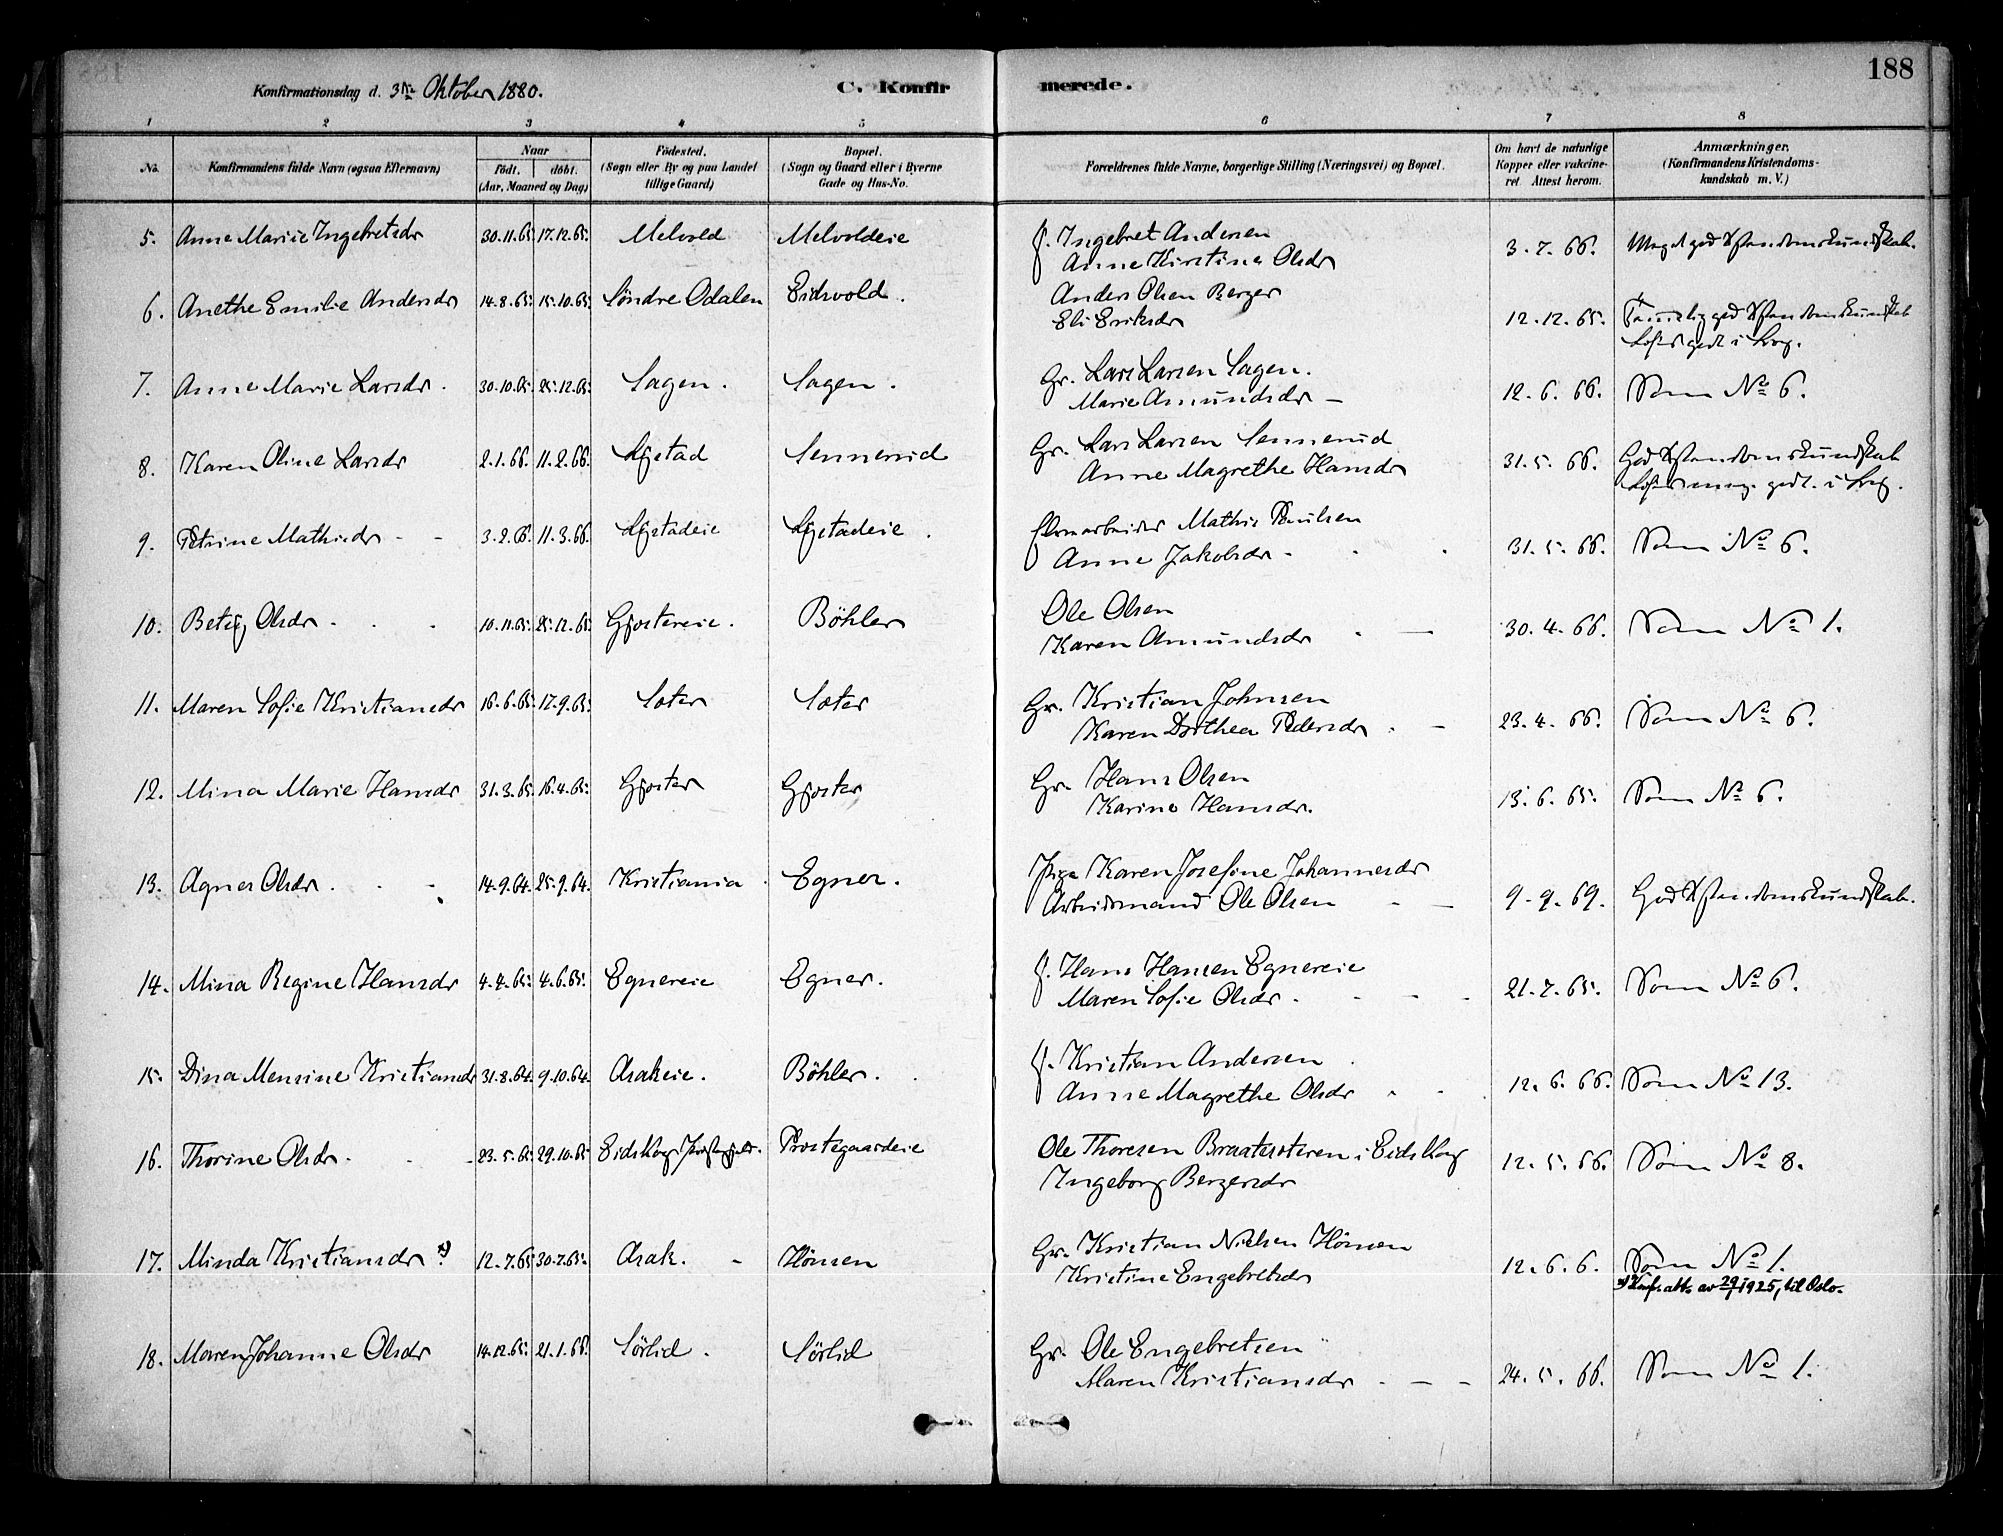 188
Konfirmationsdag d. 3die Oktober 1880.
C. Konfirmerede.
1 2 3 4 5 6 7 8
No.
Konfirmandens fulde Navn (ogsaa Efternavn)
Naar
Födt. döbt.
(Aar, Maaned og Dag)
Födested.
(Sogn eller By og paa Landet
tillige Gaard)
Bopæl.
(Sogn og Gaard eller i Byerne
Gade og Hus-No.
Forældrenes fulde Navne, borgerlige Stilling (Næringsvei) og Bopæl.
Om havt de naturlige
Kopper eller vakcine-
ret Attest herom.
Anmærkninger.
(Konfirmandens Kristendoms-
kundskab m. V.)
5. Anne Marie Ingebretsdr 30.11.65. 17.12.65. Melvold Melvoldeie f. Ingebret Andersen 3.7.66. Meget god Xstendomskundskab.
Anne Kirstine Olsdr
6. Anethe Emilie Andersdr 14.8.65. 15.10.65. Söndre Odalen Eidsvold. Anders Olsen Berger 12.12.65. Temmelig god Xstendomskundskab
Eli Eriksdr
7. Anne Marie Larsdr. 30.10.65. 25.12.65. Sagen. Sagen. Gr. Lars Larsen Sagen. 12.6.66. Som No 6.
Marie Amundsdr —
8. Karen Oline Larsdr 2.1.66. 11.2.66. Lystad Sennerud Gr. Lars Larsen Sennerud 31.5.66. God Xstendomskundskab
Anne Magrethe Hansdr
9. Petrine Mathisdr 3.2.66. 11.3.66. Lystadeie Lystadeie. Mathis Paulsen 31.5.66. Som No 6.
Anne Jakobsdr
10. Betsy Olsdr 10.11.65. 25.12.65. Gjestereie. Böhler Ole Olsen 30.4.66. Som No 1.
Karen Amundsdr
11. Maren Sofie Kristiansdr 16.6.65. 17.9.65. Sæter Sæter Gr. Kristian Johnsen 23.4.66. Som No 6.
Karen Dorthea Pedersdr
12. Mina Marie Hansdr 31.3.65. 16.4.65. Gjester Gjester Gr. Hans Olsen 13.6.65. Som No 6.
Karine Hansdr.
13. Agnes Olsdr. 14.9.64. 25.9.64. Kristiania Egner. Pige Karen Josefine Johannesdr 9.9.69. God Xstendomskundskab.
Arbeidsmand Ole Olsen
14. Mina Regine Hansdr 4.4.65. 4.6.65. Egnereie Egner. f. Hans Hansen Egnereie 21.7.65. Som No 6.
Maren Sofie Olsdr.
15. Dina Mensine Kristiansdr 31.8.64. 9.10.64. Asakeie. Böhler. f. Kristian Andersen 12.6.66. Som No 13.
Anne Magrethe Olsdr
16. Thorine Olsdr. 23.5.65. 29.10.65. Eidskog Præstegjeld. Prestegaardeie Ole Thoresen Braatesæteren i Eidskog 12.5.66. Som No 8.
Ingeborg Bergersdr
17. Minda Kristiansdr x) 12.7.65 30.7.65. Asak. Hönsen Gr. Kristian Nielsen Hönsen 12.6.6. Som No 1.
Kristine Engebretsdr x) Konf. att. av 29/1 1925, til Oslo.
18. Maren Johanne Olsdr 14.12.65. 21.1.66. Sörlid. Sörlid Gr. Ole Engebretsen 24.5.66. Som No 1.
Maren Kristiansdr